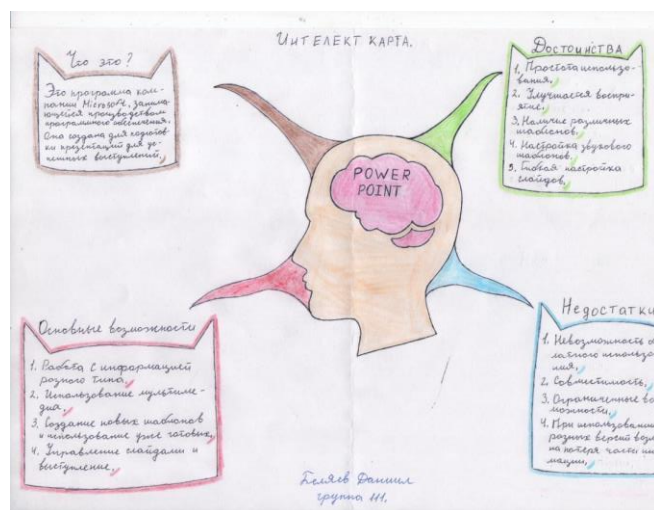 Интелект карта.
Что это?
Это программа ком-
пании Microsoft, занима-
ющейся производством
програмного обеспечения.
Она создана для
ки презентаций для
выступлений.
Достоинства
1. Простота использо-
вания.
2. Улучшается воспри-
ятие.
3. Наличие различных
шаблонов.
4. Настройка звукового
шаблонов.
5. Гибкая настройка
слайдов.
POWER
POINT
Основные возможности
1. Работа с информацией
разного типа.
2. Использование мультиме-
диа.
3. Создание новых шаблонов
и использование уже готовых.
4. Управление слайдами и
выступление.
Недостатки
1. Невозможность
использо
ния.
2. Совместимость.
3. Ограниченные во
можности.
4. При использовани
разных версий воз
на потеря части ин
мации.
Беляев Даниил
группа 111.